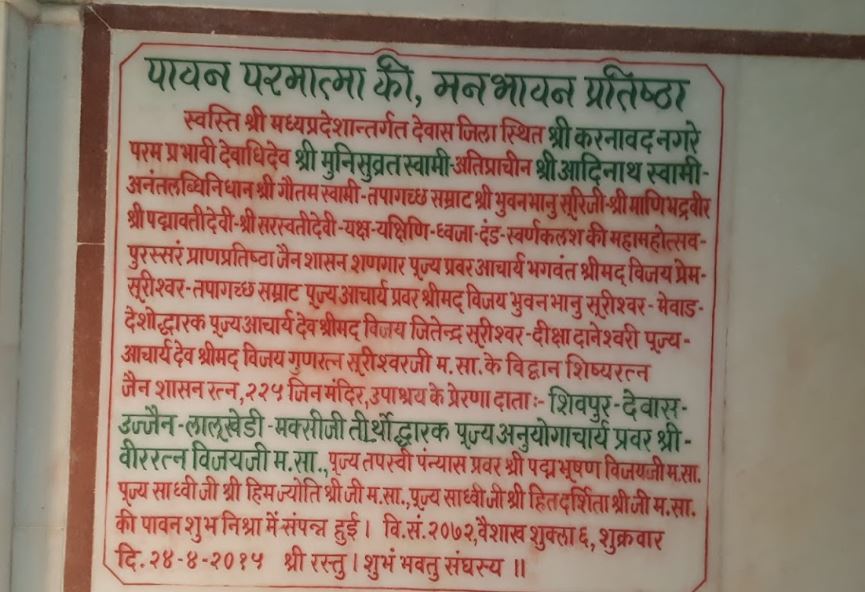 पावन परमात्मा की, मनभावन प्रतिष्ठा
स्वस्ति श्री मध्यप्रदेशान्तर्गत देवास जिला स्थित श्री करनावद नगरे
परम प्रभावी देवाधिदेव श्री मुनिसुव्रत स्वामी-अतिप्राचीन श्री आदिनाथ स्वामी-
अनंतलब्धिनिधान श्री गौतम स्वामी-तपागच्छ सम्राट श्री भुवनभानु सूरिजी-श्री माणिभद्रवीर
श्री पद्मावतीदेवी-श्री सरस्वतीदेवी-यक्ष-यक्षिणि-ध्वजा-दंड-स्वर्णकलश की महामहोत्सव-
पुरस्सरं प्राणप्रतिष्ठा जैन शासन शणगार पूज्य प्रवर आचार्य भगवंत श्रीमद् विजय प्रेम-
सूरीश्वर-तपागच्छ सम्राट पूज्य आचार्य प्रवर श्रीमद् विजय भुवनभानु सूरीश्वर-मेवाड-
देशोद्धारक पूज्य आचार्य देव श्रीमद् विजय जितेन्द्र सूरीश्वर-दीक्षा दानेश्वरी पूज्य-
आचार्य देव श्रीमद् विजय गुणरत्न सूरीश्वरजी म.सा. के विद्वान शिष्यरत्न
जैन शासन रत्न, २२५ जिनमंदिर, उपाश्रय के प्रेरणा दाता:- शिवपुर-देवास-
उज्जैन-लालूखेडी-मक्सीजी तीर्थोद्धारक पूज्य अनुयोगाचार्य प्रवर श्री-
वीररत्न विजयजी म.सा., पूज्य तपस्वी पंन्यास प्रवर श्री पद्मभूषण विजयजी म.सा.
पूज्य साध्वीजी श्री हिमज्योति श्रीजी म.सा., पूज्य साध्वीजी श्री हितदर्शिता श्रीजी म.सा.
की पावन शुभ निश्रा में संपन्न हुई। वि.सं. २०७२, वैशाख शुक्ला ६, शुक्रवार
दि. २४-४-२०१५ श्री रस्तु। शुभं भवतु संघस्य ॥